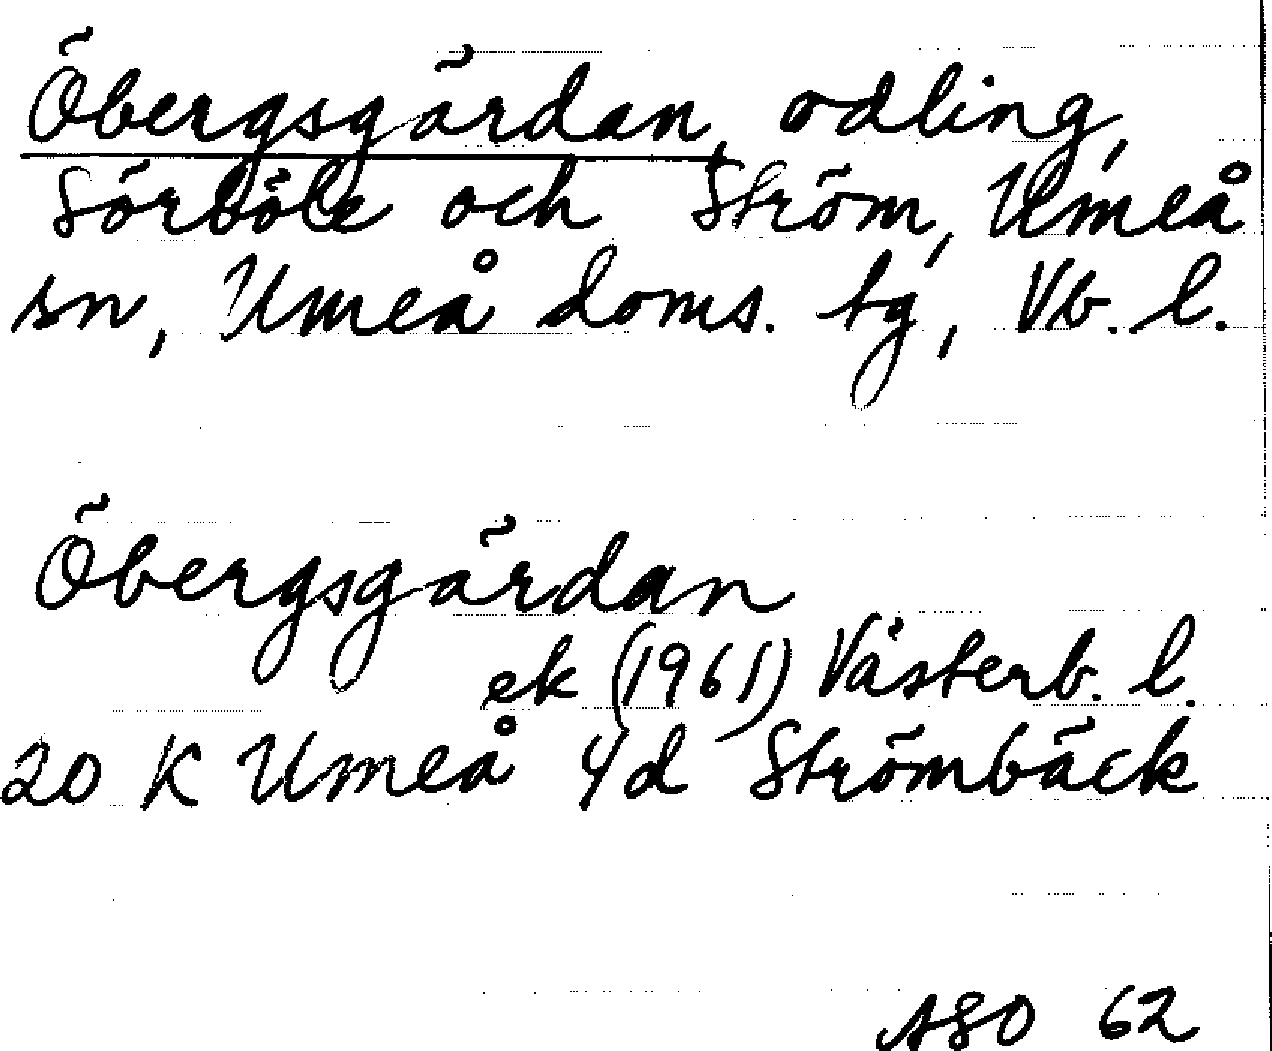 Öbergsgärdan, odling,
Sörböle och Ström, Umeå
sn, Umeå doms. tg, Vb. l.
Öbergsgärdan
ek (1961) Västerb. l.
20 K Umeå 4d Strömbäck
ASO 62